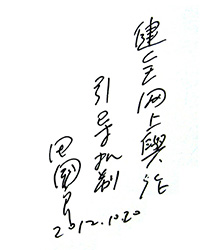 健全网上舆论
引导机制
田國
2012.10.20